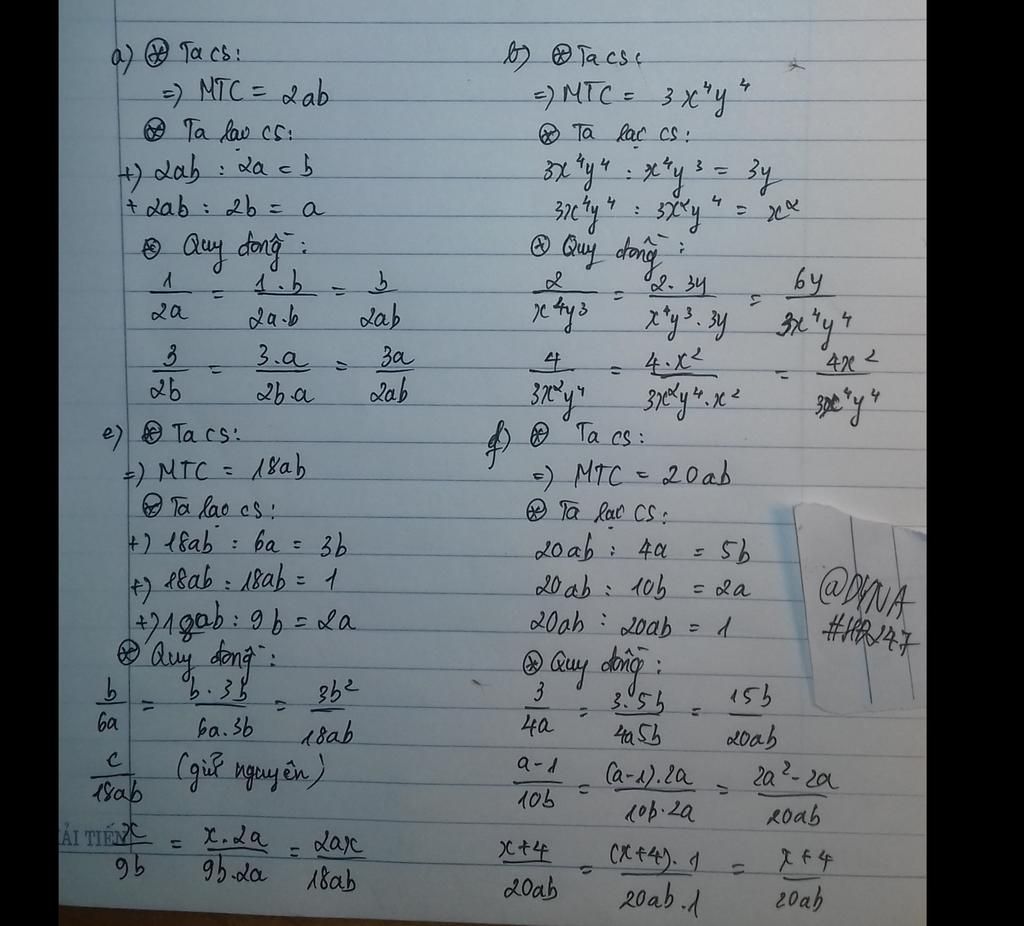 a) ⊛ Ta có:
=) MTC = 2ab
⊛ Ta lại có:
+) 2ab : 2a = b
+ 2ab : 2b = a
⊛ Quy đồng:
1/2a = 1.b/2a.b = b/2ab
3/2b = 3.a/2b.a = 3a/2ab
b) ⊛ Ta có:
=) MTC = 3x⁴y⁴
⊛ Ta lại có:
3x⁴y⁴ : x⁴y³ = 3y
3x⁴y⁴ : 3x²y⁴ = x²
⊛ Quy đồng:
2/x⁴y³ = 2.3y/x⁴y³.3y = 6y/3x⁴y⁴
4/3x²y⁴ = 4.x²/3x²y⁴.x² = 4x²/3x⁴y⁴
e) ⊛ Ta có:
=) MTC = 18ab
⊛ Ta lại có:
+) 18ab : 6a = 3b
+) 18ab : 18ab = 1
+) 18ab : 9b = 2a
⊛ Quy đồng:
b/6a = b.3b/6a.3b = 3b²/18ab
c/18ab (giữ nguyên)
x/9b = x.2a/9b.2a = 2ax/18ab
f) ⊛ Ta có:
=) MTC = 20ab
⊛ Ta lại có:
20ab : 4a = 5b
20ab : 10b = 2a
20ab : 20ab = 1
⊛ Quy đồng:
3/4a = 3.5b/4a5b = 15b/20ab
a-1/10b = (a-1).2a/10b.2a = 2a²-2a/20ab
x+4/20ab = (x+4).1/20ab.1 = x+4/20ab
@DYNA
ẢI TIẾN